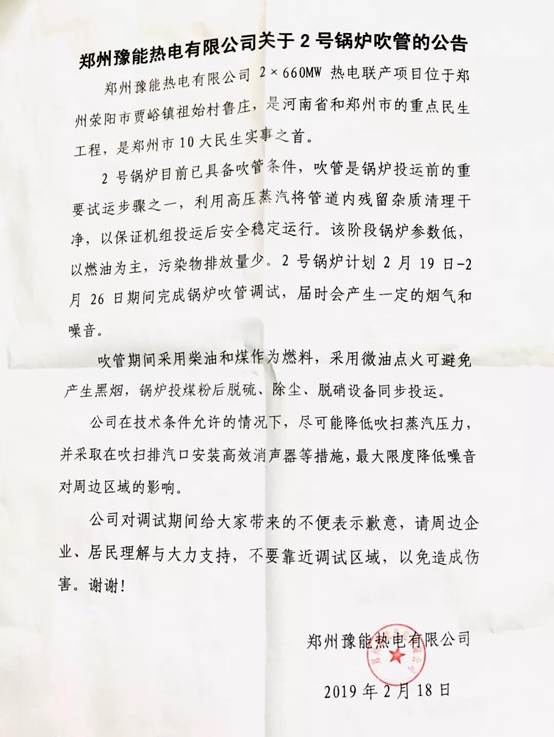 郑州豫能热电有限公司关于2号锅炉吹管的公告
郑州豫能热电有限公司 2×660MW 热电联产项目位于郑
州荥阳市贾峪镇祖始村鲁庄，是河南省和郑州市的重点民生
工程，是郑州市 10 大民生实事之首。
2 号锅炉目前已具备吹管条件，吹管是锅炉投运前的重
要试运步骤之一，利用高压蒸汽将管道内残留杂质清理干
净，以保证机组投运后安全稳定运行。该阶段锅炉参数低，
以燃油为主，污染物排放量少。2 号锅炉计划 2 月 19 日-2
月 26 日期间完成锅炉吹管调试，届时会产生一定的烟气和
噪音。
吹管期间采用柴油和煤作为燃料，采用微油点火可避免
产生黑烟，锅炉投煤粉后脱硫、除尘、脱硝设备同步投运。
公司在技术条件允许的情况下，尽可能降低吹扫蒸汽压力，
并采取在吹扫排汽口安装高效消声器等措施，最大限度降低噪音
对周边区域的影响。
公司对调试期间给大家带来的不便表示歉意，请周边企
业、居民理解与大力支持，不要靠近调试区域，以免造成伤
害。谢谢！
郑州豫能热电有限公司
2019 年 2 月 18 日